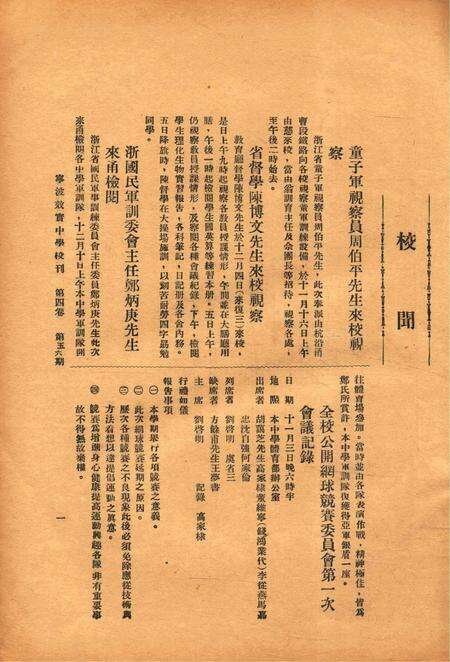 校聞
童子軍視察員周伯平先生來校視
察
浙江省童子軍視察員周伯平先生，此次奉派由杭沿甬
曹段鐵路向各校視察童軍訓練設備，於十一月十六日上午
由慈來校，當由翁訓育主任及余團長等招待，視察各處，
至午後二時始去。
省督學陳博文先生來校視察
教育廳督學陳博文先生於十二月四日（來復三）來校，
是日上午九時起視察各教員授課情形，午間並在大膳廳用
膳，午後一時起檢閱學生國英算等練習本册。五日上午，
仍視察教員授課情形，及察閱各種會議紀錄，下午，檢閱
學生理化生物實習報告，各科筆記，日記册及各舍內務。
五日降旗時，陳督學在大操場施訓，以刻苦耐勞四字訓勉
同學。
浙國民軍訓委會主任鄭炳庚先生
來甬檢閱
浙江省國民軍事訓練委員會主任委員鄭炳庚先生此次
來甬檢閱各中學軍訓隊，十二月十日上午本中學軍訓隊開
寧波效實中學校刊　第四卷　第五六期
往體育場參加。當時並由各隊表演作戰，精神極佳，皆爲
鄭氏所賞許，本中學軍訓隊復獲得亞軍銀盾一座。
全校公開網球競賽委員會第一次
會議記錄
日期　十一月三日晚六時半
地點　本中學體育部辦公室
出席者　胡蔼芝先生高家棣董維寧（錢鴻業代）李從燕馬嘉
忠沈自強何家倫
列席者　劉啓明　虞省三
缺席者　方餘甫先生王夢書
主席　劉啓明　記錄　高家棣
行禮如儀
報告事項
㊀本學期舉行各項競賽之意義。
㊁此次網球競賽延期之原因。
㊂歷次各種競賽之不良現象此後必須免除應從技術與
方法着想以達提倡運動之眞意。
㊃競賽爲增進身心健康提高運動興趣各隊非有重要事
故不得無故棄權。
一